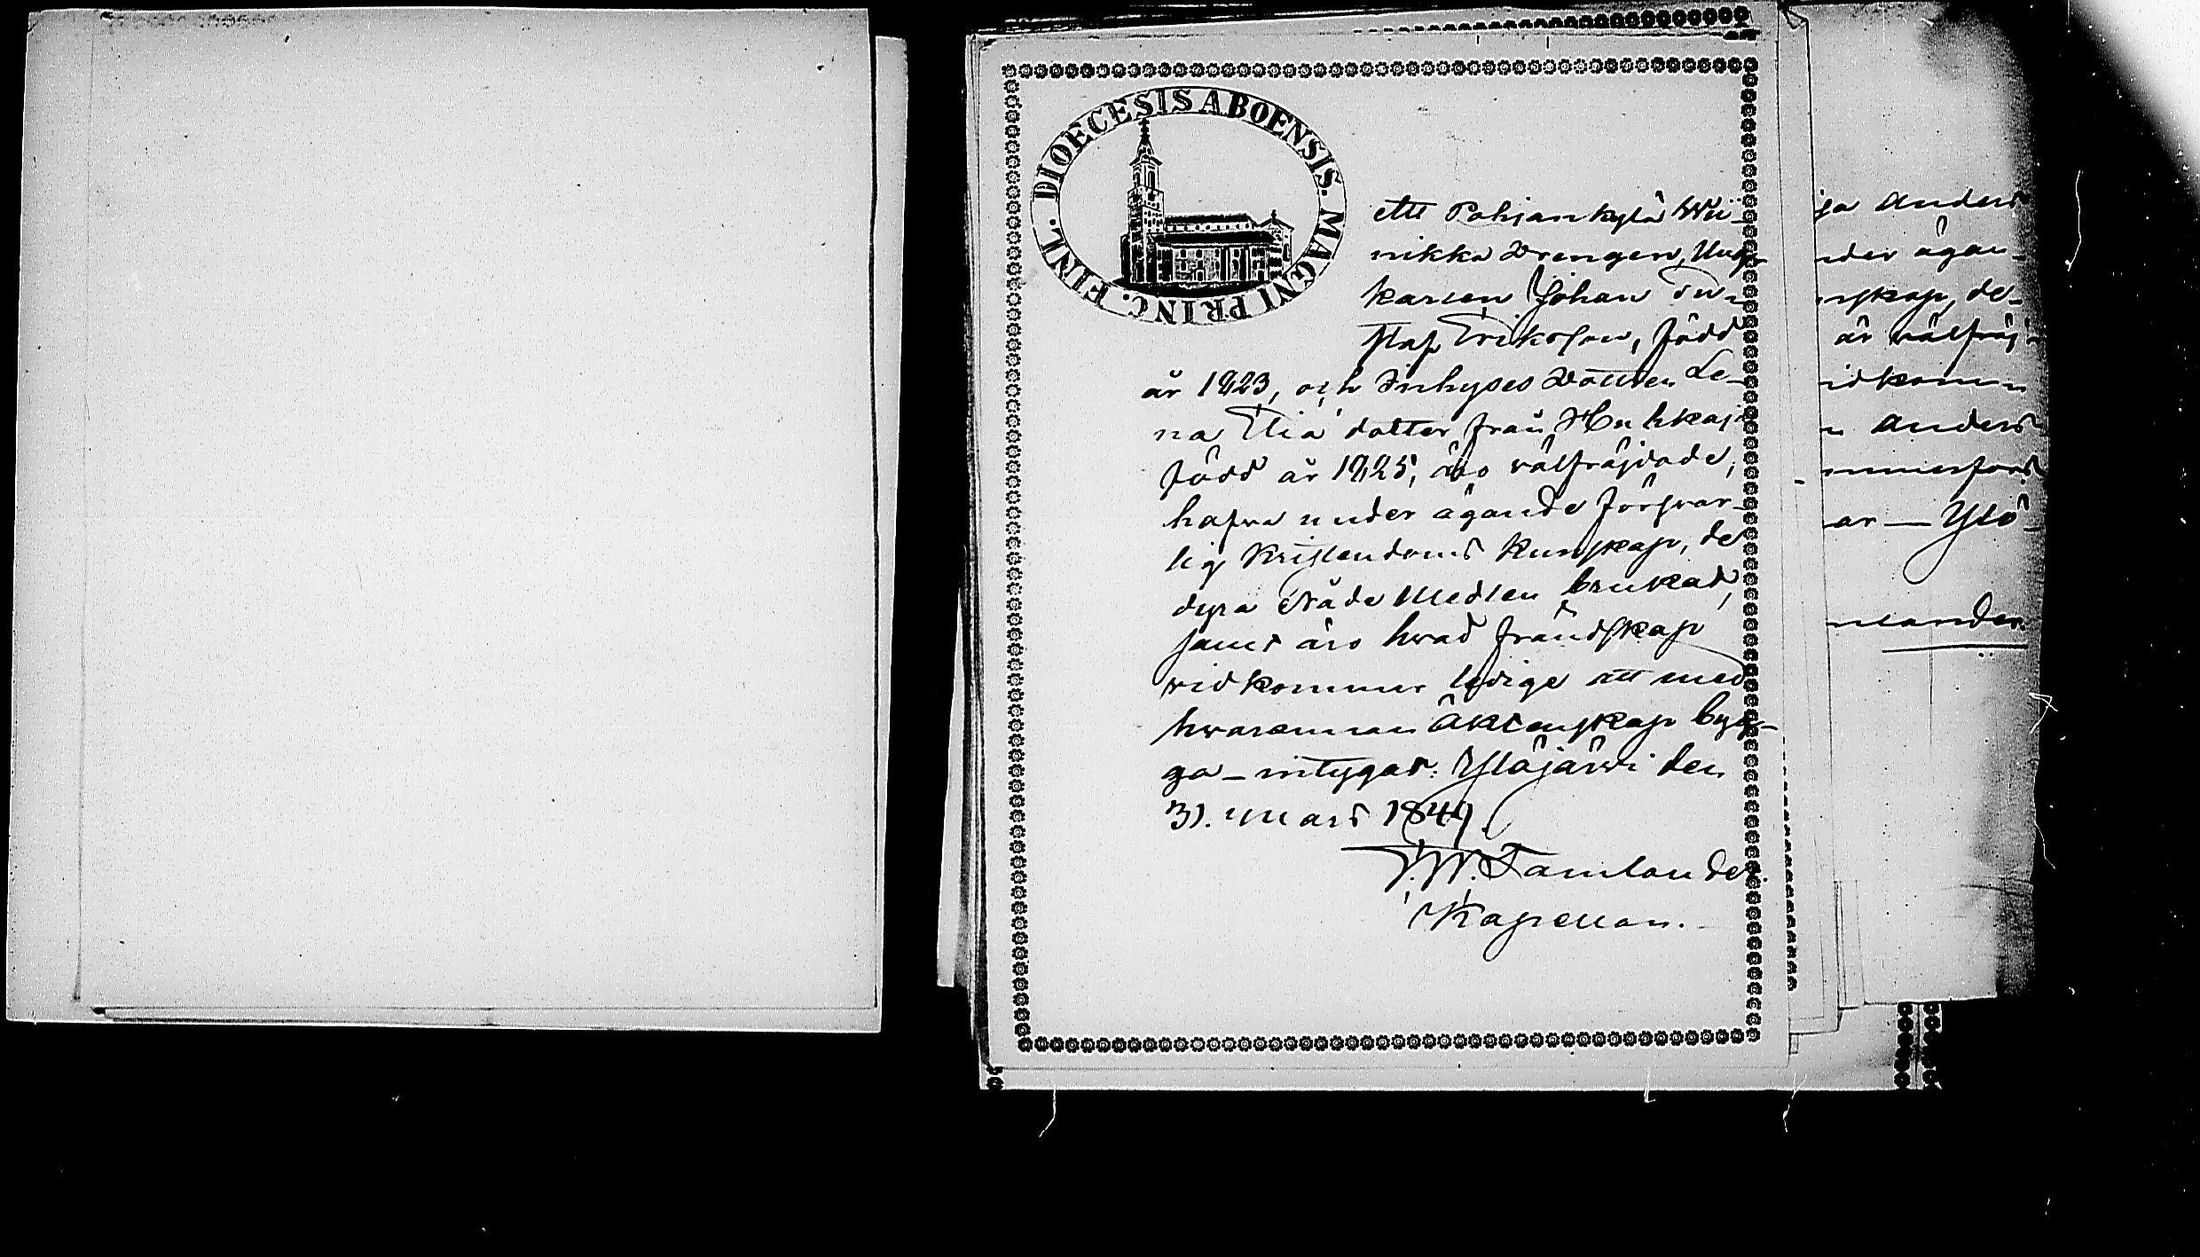 DIOECESIS ABOENSIS. MAGNI PRINC. FINL.
att Pohjankylä Wii-
nikka Drengen, Ung-
karlen Johan Gu-
staf Eriksson, född
år 1823, och Inhyses Dottren Le-
na Elia dotter från
född år 1825, äro välfräjdade,
hafva under ägande försvar-
lig Kristendoms Kunskap, de
dyra Nåde Medlen brukat,
samt äro hvad frändskap
vidkommer ledige att med
hvarannan Äktenskap byg-
ga – intygas. Ylöjärvi den
31. mars 1849.
Tamlander.
Kapellan.
ja Anders
nder ägan-
nskap, de-
är välfräj-
idkomm
n Anders
mmerfors
ar — Ylö-
mlander.